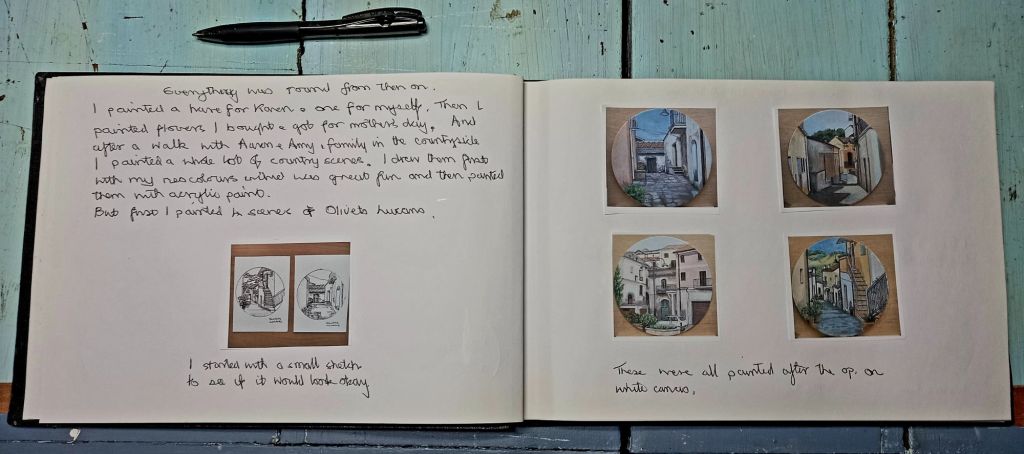 Everything was round from then on.
I painted a hare for Karen & one for myself. Then I
painted flowers I bought & got for mothers day. And
after a walk with Aaron & Amy & family in the countryside
I painted a whole lot of country scenes. I drew them first
with my neocolours which was great fun and then painted
them with acrylic paint.
But first I painted 4 scenes of Oliveto Lucano.
I started with a small sketch
to see if it would look okay
These were all painted after the op. on
white canvas.